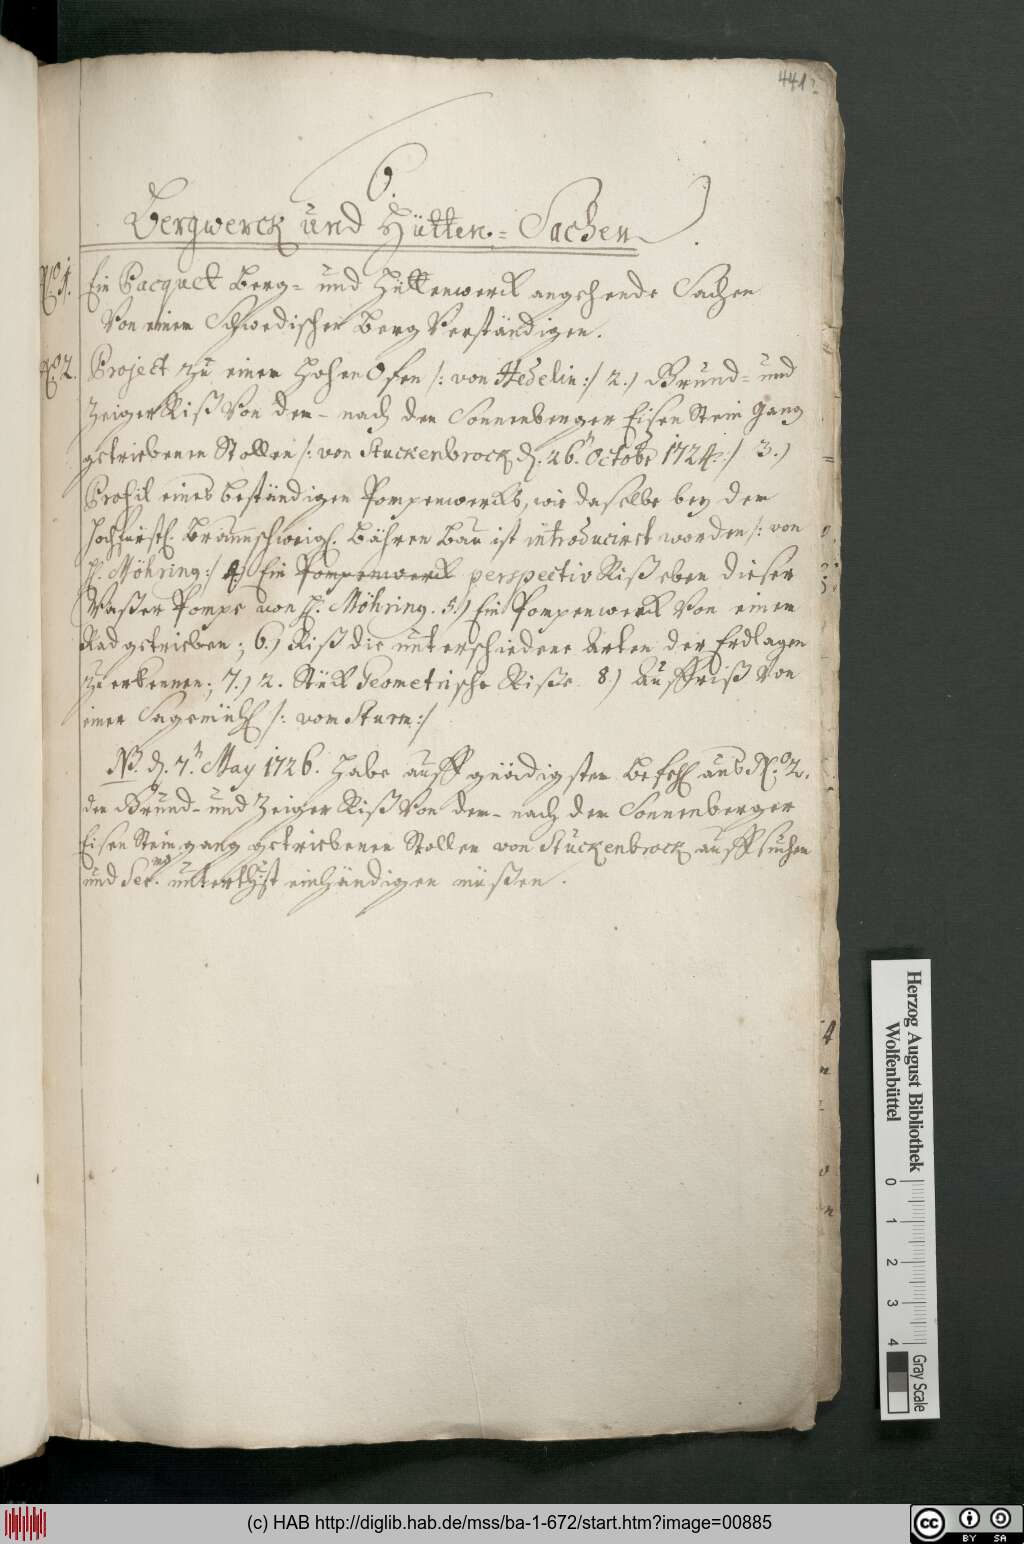 441.
6.
Bergwerck und Hütten-Sachen.
No 1. Ein Pacquet Berg- und Hüttenwerck angehende Sachen
Von einem Schwedischen Berg Verständigen.
No 2. Project zu einen Hohen Ofen /: von Hedelin :/ 2.) Grund- und
Zeiger Riß Von dem nach den Sonnenberger Eisen Stein Gang
getriebenen Stollen /: von Stuckenbrock d. 26. Octobr 1724. :/ 3.)
Profil eines beständigen Pompenwercks, wie daselbe bey dem
Hochfürstl. Braunschweigl. Bähren Bau ist introduciret worden /: von
H. Möhring :/ 4.) Ein Pompenwerck perspectiv Riß eben dieser
Waßer Pompe von H. Möhring. 5.) Ein Pompenwerck Von einem
Rad getrieben; 6.) Riß die unterschiedene Arten der Erdlagen
zu erkennen; 7.) 2. Stück Geometrische Riße. 8.) Auffriß Von
einer Sagemühl /: vom Sturm :/
NB. d. 7.t May 1726. Habe auff gnädigsten Befehl aus No 2.
den Grund- und Zeiger Riß Von dem nach dem Sonnenberger
Eisen Stein gang getriebenen Stollen von Stuckenbrock auffsuchen
und Ser.mo unterthst einhändigen müßen.
Herzog August Bibliothek
Wolfenbüttel
0 1 2 3 4
Gray Scale
(c) HAB http://diglib.hab.de/mss/ba-1-672/start.htm?image=00885
cc BY SA